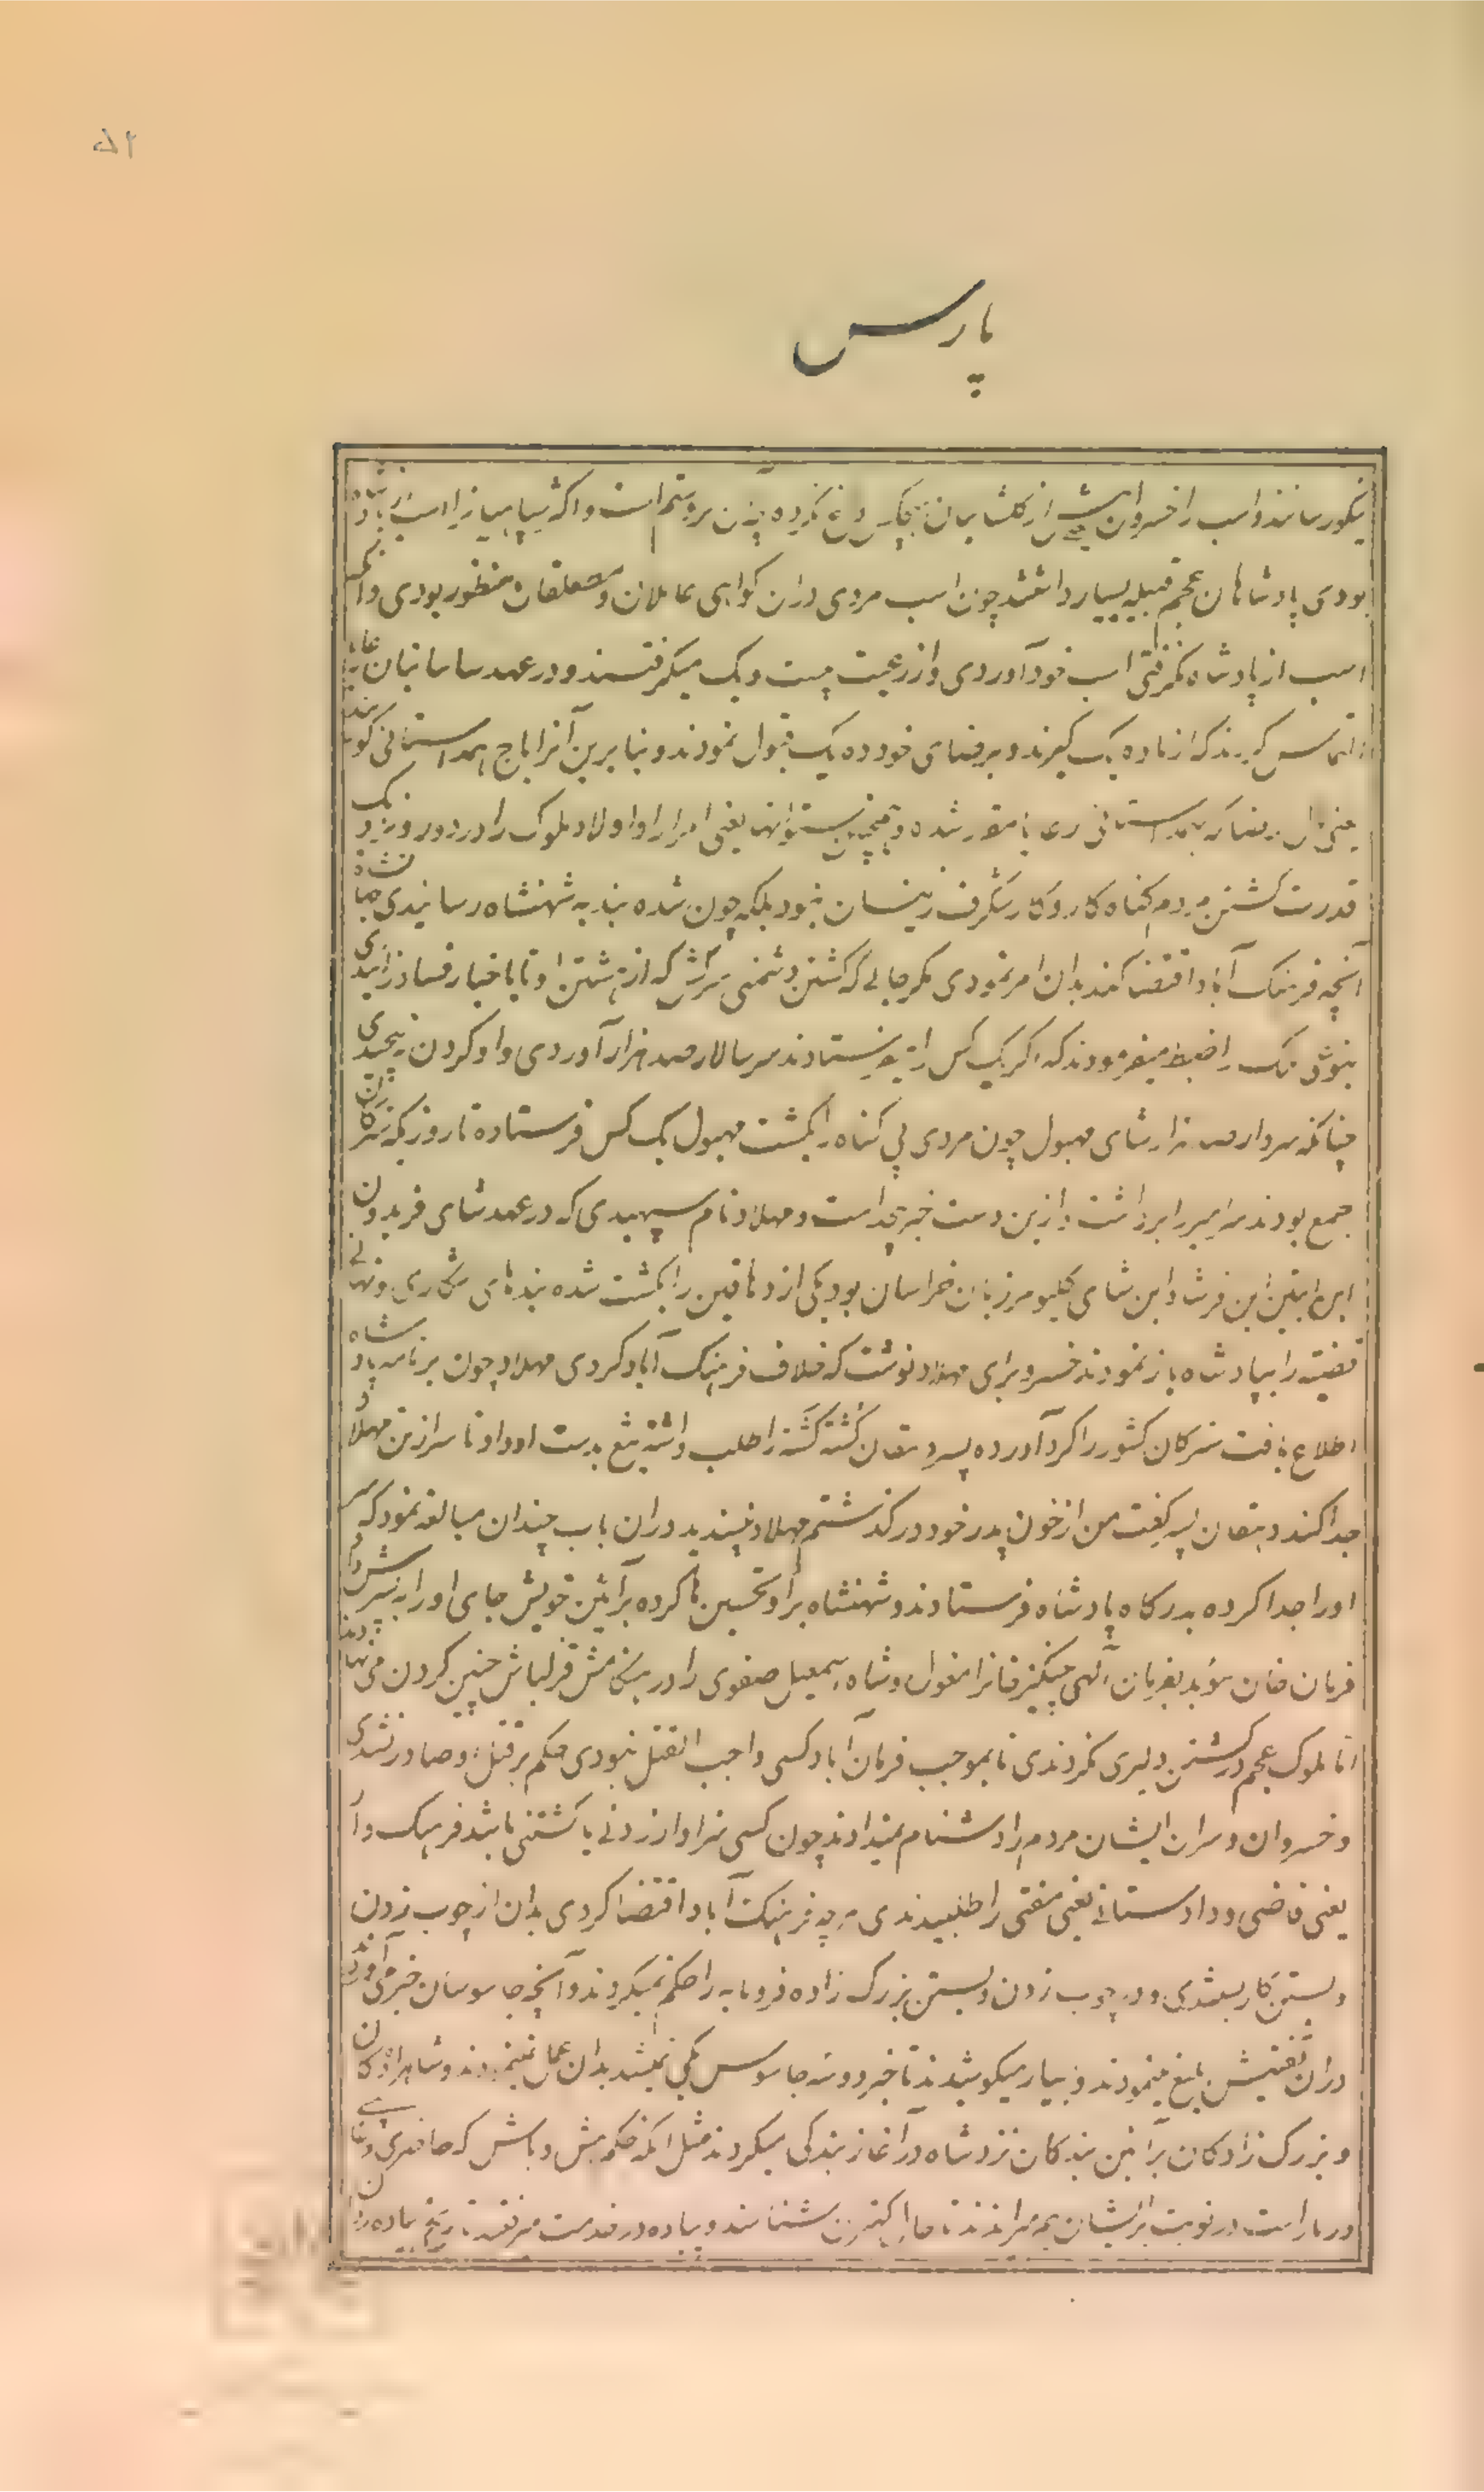 ۵۲
پارس
نیکو رسانند و اسب را خسروان از کلشائیان داغ نکرده و اکثر سپاهیان را اسب از پادشاه
بودی پادشاهان عجم قبیله بسیار داشتند چون اسب مردی دران کواهی عاملان و متعلقان منظور بودی و انکه
اسب از پادشاه نکرفتی اسب خود آوردی و از رعیت بیست و یک میکرفتند و در عهد ساسانیان رعایا
التماس کردند که از ما ده یک کیرند و برضای خود ده یک قبول نمودند و بنابرین آنرا باج همداستانی کویند
رضا که بهمداستانی رعایا مقرر شده و همچنین یعنی امرا را و اولاد ملوک را در دور و نزدیک
قدرت کشتن مردم کناه کار و کار شکرف زینسان نبود بلکه چون شده بند به شهنشاه رسانیدی شاه
آنچه فرهنک آباد اقتضا کند بدان امر نمودی مکر جائے که کشتن دشمنی سرکش که از نکشتن او تا با خبار فساد زائیدی
ضبط میفرمودند که اکر یک کس را میفرستادند سر سالار صد هزار آوردی و او کردن نپیچیدی
چنانکه سردار صد هزار شای مهبول چون مردی بی کناه را بکشت مهبول یک کس فرستاده تا روزیکه سرکان
جمع بودند سر امیر را برداشت و ازین دست خبر بیحد است و مهلاد نام سپهبدی که در عهد شای فریدون
ابن ابتین بن فرشاد ابن شای کلیو مرزبان خراسان بود یکی از دهاقین را بکشت شده بندهای آشکاری و نهانے
قضیه را بپادشاه باز نمودند خسرو برای مهلاد نوشت که خلاف فرهنک آباد کردی مهلاد چون بر نامه پادشاه
اطلاع یافت سرکان کشور را کرد آورده پسر دهقان کشته کشته را طلب داشته تیغ بدست او داد تا سر از تن مهلاد
جدا کند دهقان پسر کفت من از خون پدر خود در کذشتم مهلاد نپسندید و دران باب چندان مبالغه نمود که سر
او را جدا کرده بدرکاه پادشاه فرستادند و شهنشاه بر او تحسین ها کرده بر آئین خویش جای او را به پسرش داد
فرمان خان مؤید بفرمان الهی چنکیز خانرا مغول و شاه اسمعیل صفوی را در منش قزلباش چنین کردن می نهادند
اما ملوک عجم در کشتن دلیری نکردندی تا بموجب فرمان آباد کسی واجب القتل نبودی حکم بر قتل او صادر نشدی
و خسروان و سران ایشان مردم را دشنام نمیدادند چون کسی سزاوار زدنے یا کشتنی باشد فرهنک دار
یعنی قاضی و دادستانے یعنی مفتی را طلبیدندی هر چه فرهنک آباد اقتضا کردی بدان از چوب زدن
و بستن کار بستندی و در چوب زدن و بستن بزرک زاده فرومایه را حکم نمیکردند و آنچه جاسوسان خبر می آوردند
دران تفتیش بلیغ مینمودند و بسیار میکوشیدند تا خبر دو سه جاسوس یکی نمیشد بدان عمل نمینمودند و شاهزادکان
و بزرک زادکان بر آئین بندکان نزد شاه در آغاز بندکی میکردند مثل انکه حکم بش و باش که حاضری و غائبے
دربار است در نوبت بر ایشان هم میراندند تا حال کمترین شناسند و پیاده در خدمت میرفتند تا رنج پیاده روان